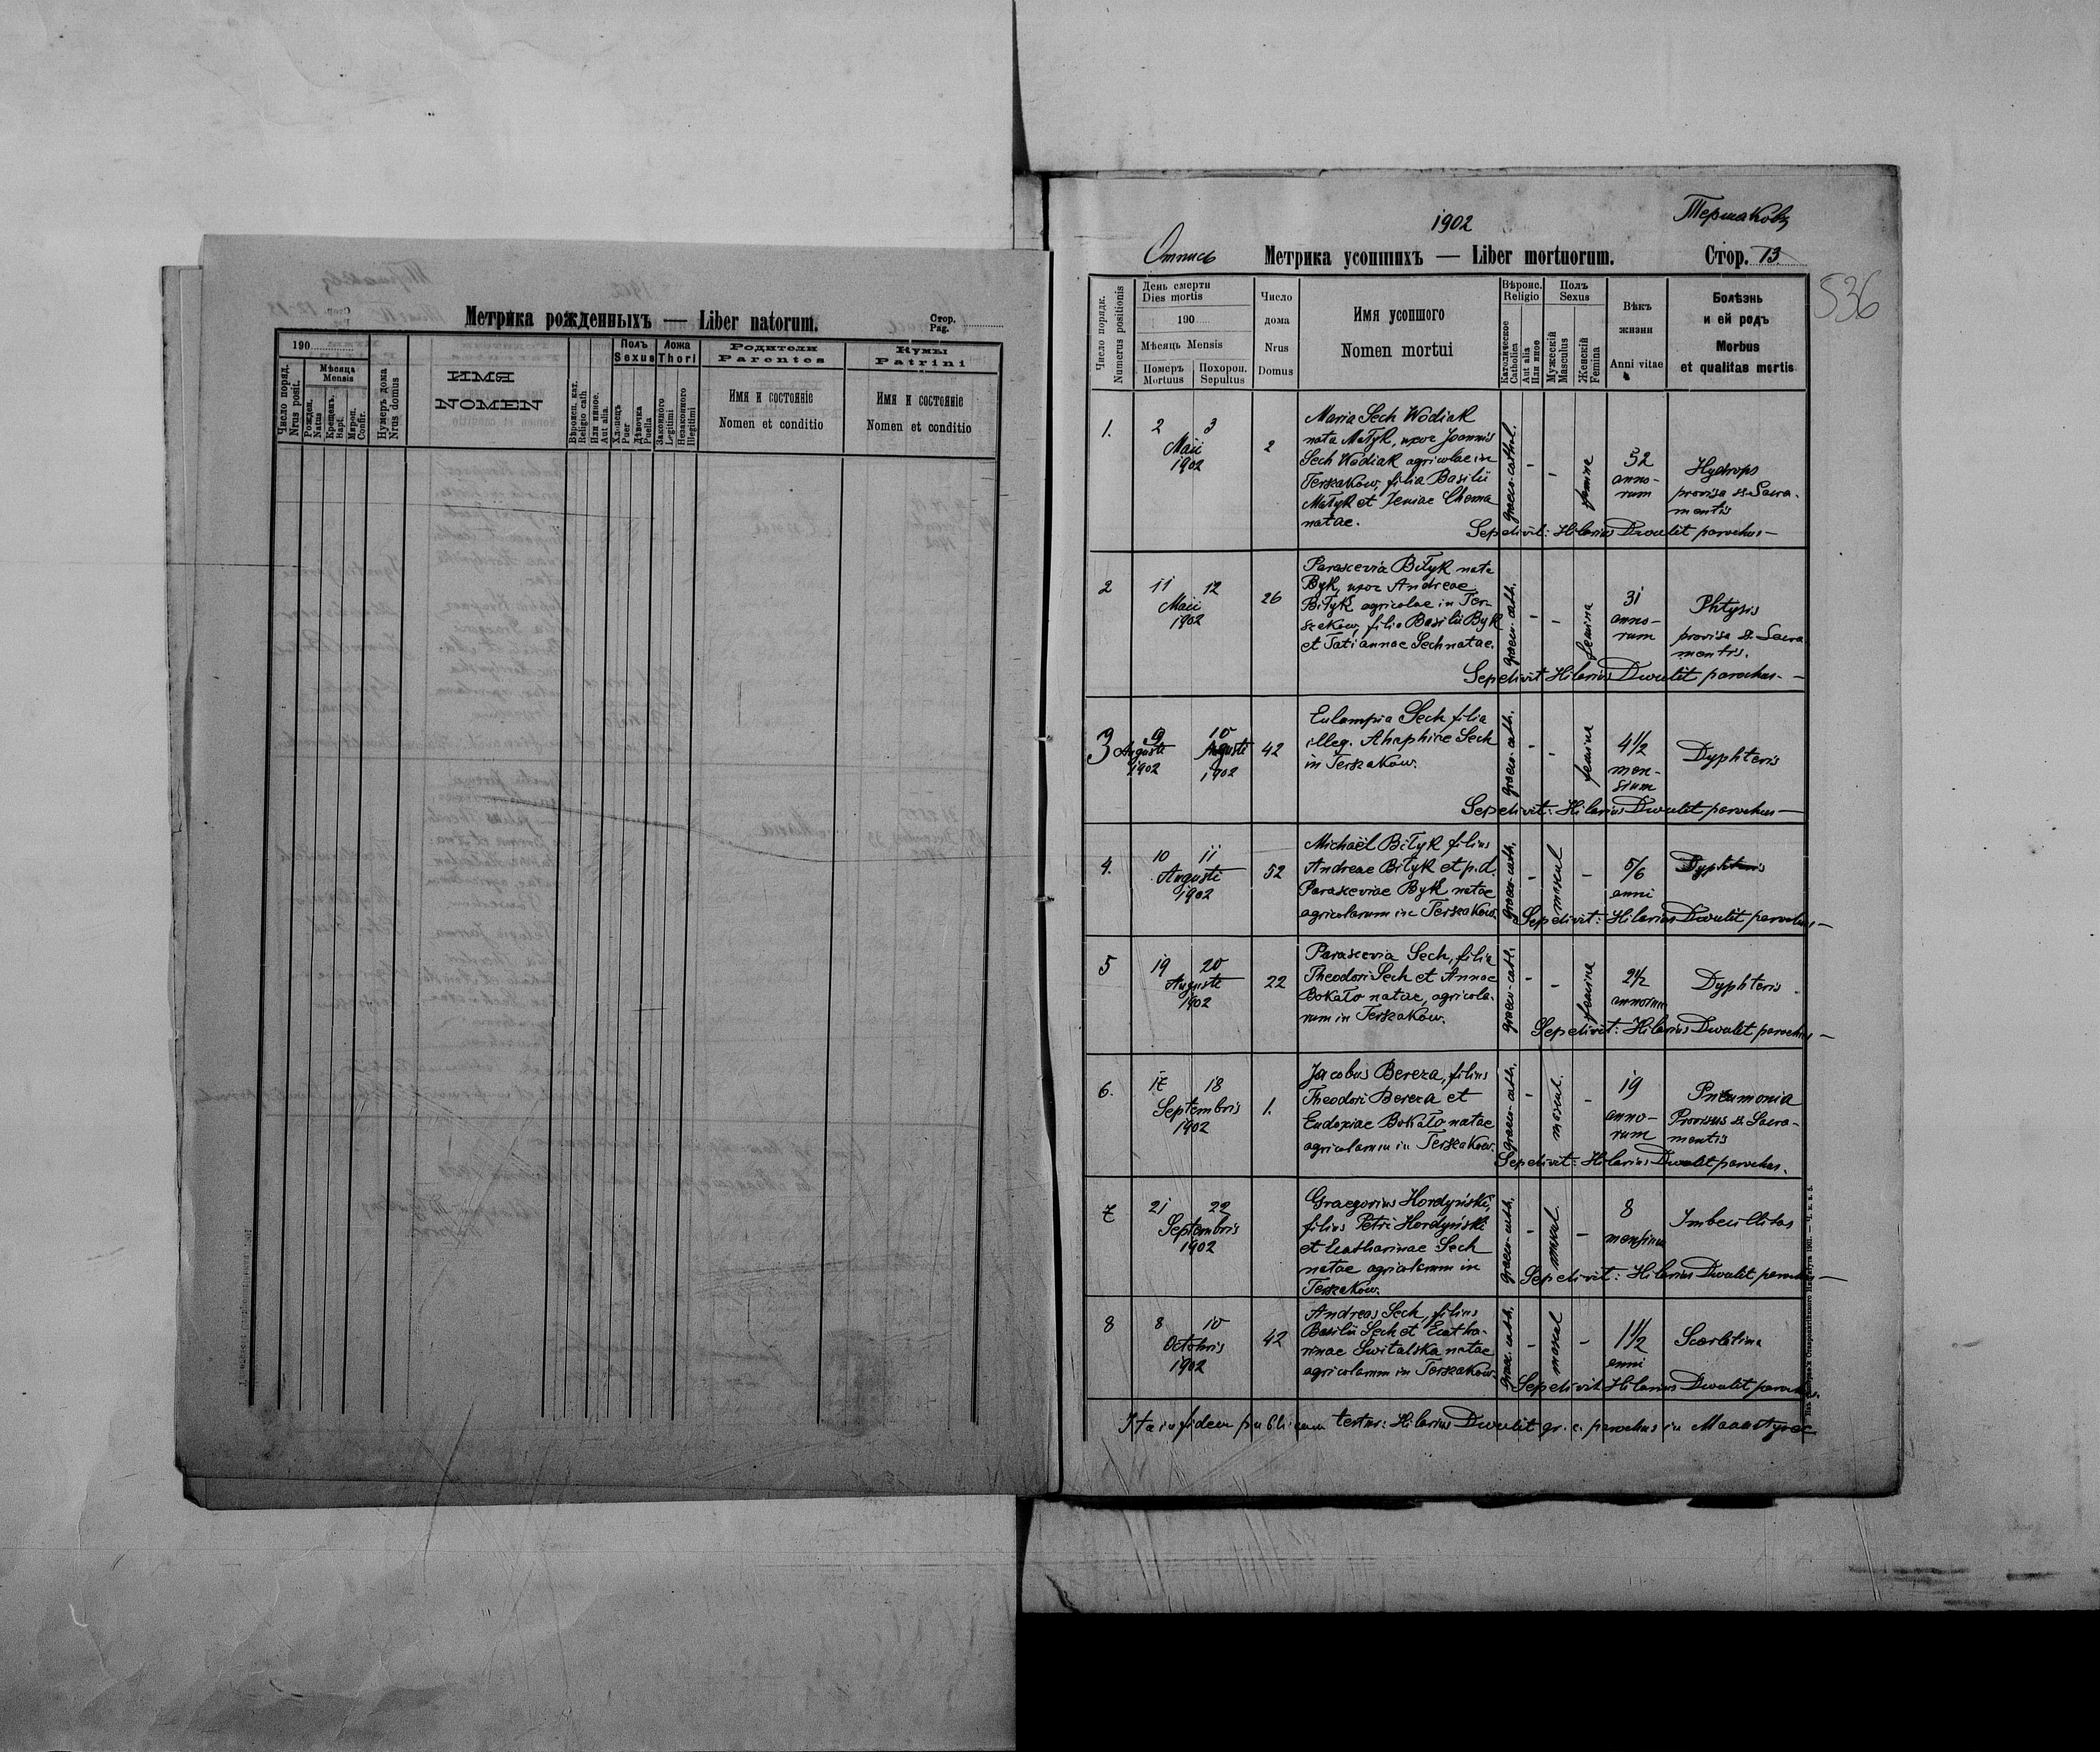 Метрика рожденныхъ — Liber natorum.
Стор.
Pag.
190
Число поряд.
Nrus posit.
Мѣсяца
Mensis
Рожден.
Natus
Крещенъ.
Bapt.
Мѵроп.
Confir.
Нумеръ дома
Nrus domus
ИМЯ
NOMEN
Вѣроисп. кат.
Religio cath
Или иное.
Aut alia.
Полъ
Sexus
Хлопецъ
Puer
Дѣвочка
Puella
Ложа
Thori
Законного
Legitimi
Незаконного
Illegitimi
Родители
Parentes
Имя и состоянiе
Nomen et conditio
Кумы
Patrini
Имя и состоянiе
Nomen et conditio
1902
Отпись
Метрика усопшихъ — Liber mortuorum.
Стор. 13
536
Число порядк.
Numerus positionis
День смерти
Dies mortis
190
Мѣсяць Mensis
Померъ
Mortuus
Похорон.
Sepultus
Число
дома
Nrus
Domus
Имя усопшого
Nomen mortui
Вѣроис.
Religio
Католическое
Catholica
Aut alia
Или иное
Полъ
Sexus
Мужескiй
Masculus
Женскiй
Femina
Вѣкъ
жизни
Anni vitae
Болѣзнь
и ей родъ
Morbus
et qualitas mortis
1.
2 3
Maii
1902
2
Maria Sech Wodiak
nata Matyk, uxor Joannis
Sech Wodiak agricolae in
Terszaków, filia Basilii
Matyk et Xeniae Choma
natae.
graeco-cathol.
-
-
femina
52
anno-
rum
Hydrops
provisa ss. Sacra-
mentis
Sepelivit: Hilarius Dwulit parochus —
2
11 12
Maii
1902
26
Parascevia Bityk nata
Byk, uxor Andreae
Bityk agricolae in Ter-
szaków, filia Basilii Byk
et Tatiannae Sech natae.
graeco-cath.
-
-
femina
31
anno-
rum
Phtysis
provisa ss. Sacra
mentis.
Sepelivit Hilarius Dwulit parochus. —
3
9 10
Augusti Augusti
1902 1902
42
Eulampia Sech filia
illeg. Ahaphiae Sech
in Terszaków.
graeco-cath.
-
-
femina
4 1/2
men-
sium
Dyphteris
Sepelivit: Hilarius Dwulit parochus —
4.
10 11
Augusti
1902
52
Michaël Bityk filius
Andreae Bityk et p.d.
Parasceviae Byk natae
agricolarum in Terszaków.
graeco-cath.
-
mascul
-
5/6
anni
Dyphteris
Sepelivit: Hilarius Dwulit parochus —
5
19 20
Augusti
1902
22
Parascevia Sech, filia
Theodori Sech et Annae
Bokato natae, agricola-
rum in Terszaków.
graeco-cath.
-
-
femina
2 1/2
annorum
Dyphteris
Sepelivit: Hilarius Dwulit parochus —
6.
17 18
Septembris
1902
1.
Jacobus Bereza, filius
Theodori Bereza et
Eudoxiae Bokato natae
agricolarum in Terszaków.
graeco-cath.
-
mascul.
-
19
anno-
rum
Pneumonia
Provisus ss. Sacra-
mentis
Sepelivit: Hilarius Dwulit parochus.
7
21 22
Septembris
1902
Graegorius Hordyński,
filius Petri Hordyński
et Ecatharinae Sech
natae agricolarum in
Terszaków.
graeco-cath.
-
mascul.
-
8
mensium
Imbecillitas
Sepelivit: Hilarius Dwulit parochus —
8
8 10
Octobris
1902
42
Andreas Sech, filius
Basilii Sech et Ecatha-
rinae Switalska natae
agricolarum in Terszaków.
graec. cath.
-
mascul
-
1 1/2
anni
Scarlatina
Sepelivit Hilarius Dwulit parochus.
Ita in fidem publicam testor: Hilarius Dwulit gr. c. parochus in